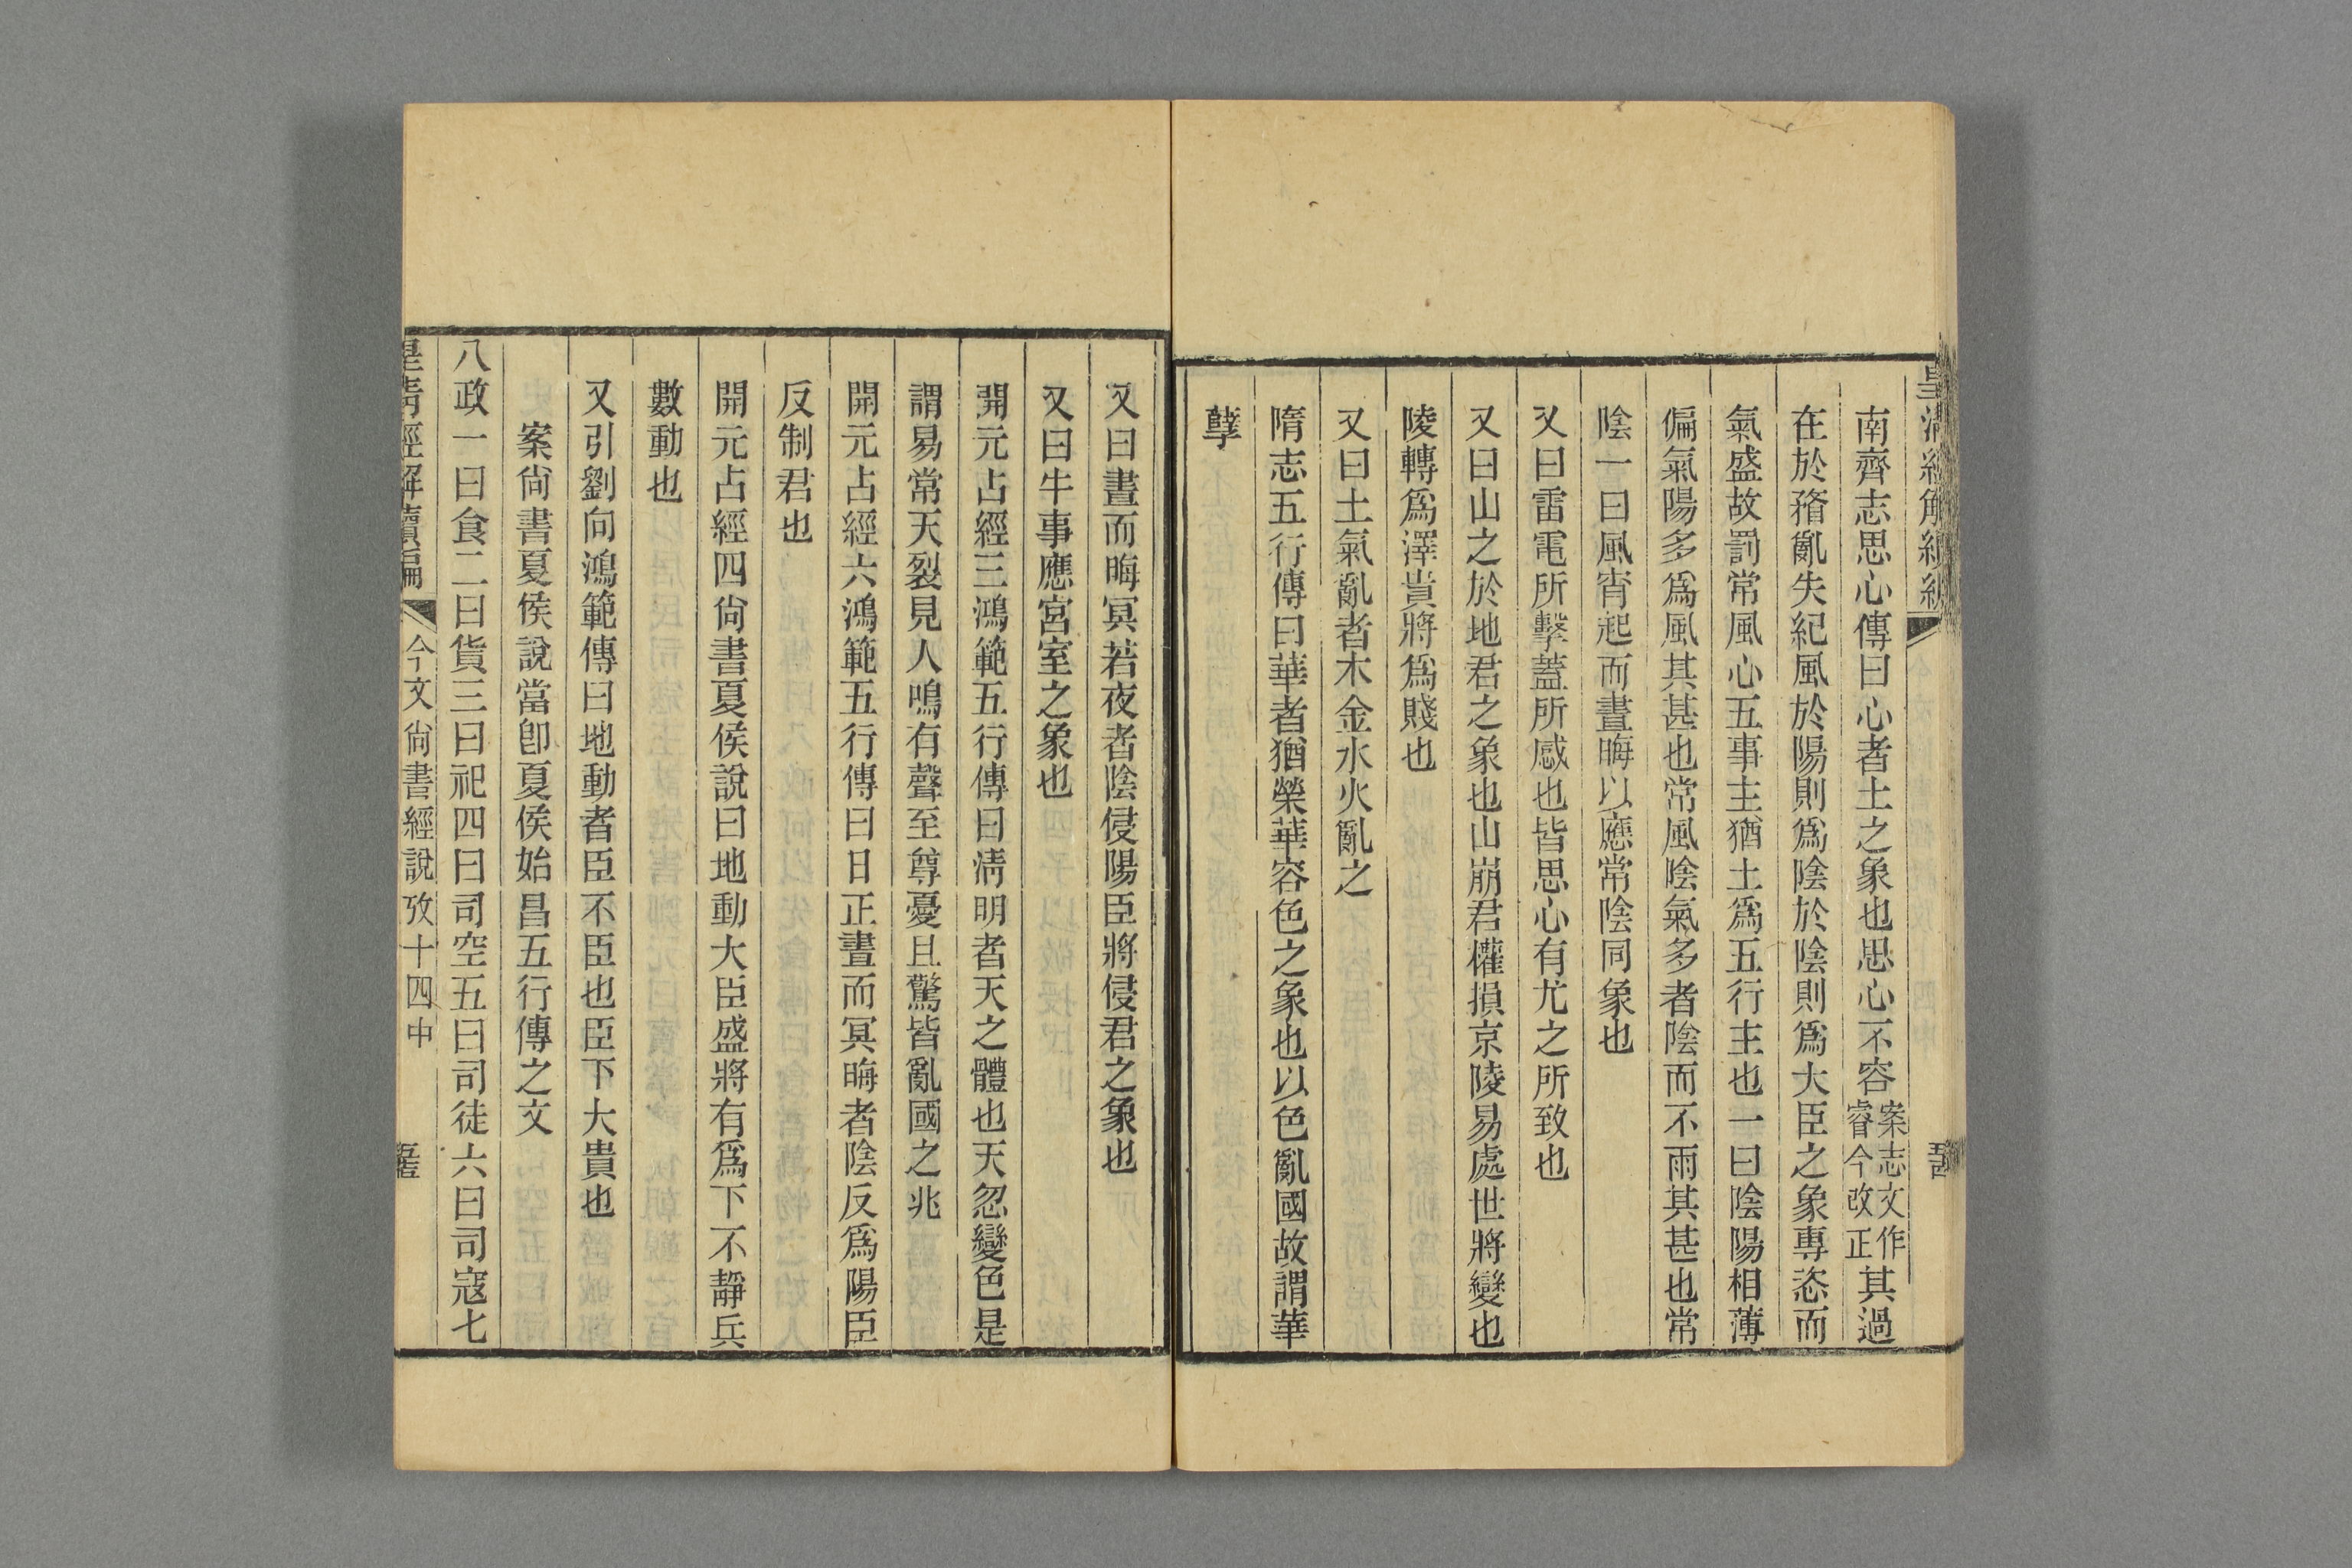 南齊志思心傳曰心者土之象也思心不容案志文作睿今改正其過
在於瞀亂失紀風於陽則爲陰於陰則爲大臣之象專恣而
氣盛故罰常風心五事主猶土爲五行主也一曰陰陽相薄
偏氣陽多爲風其甚也常風陰氣多者陰而不雨其甚也常
陰一曰風宵起而晝晦以應常陰同象也
又曰雷電所擊蓋所感也皆思心有尤之所致也
又曰山之於地君之象也山崩君權損京陵易處世將變也
陵轉爲澤貴將爲賤也
又曰土氣亂者木金水火亂之
隋志五行傳曰華者猶榮華容色之象也以色亂國故謂華
孽
又曰晝而晦冥若夜者陰侵陽臣將侵君之象也
又曰牛事應宮室之象也
開元占經三鴻範五行傳曰淸明者天之體也天忽變色是
謂易常天裂見人鳴有聲至尊憂且驚皆亂國之兆
開元占經六鴻範五行傳曰日正晝而冥晦者陰反爲陽臣
反制君也
開元占經四尙書夏侯說曰地動大臣盛將有爲下不靜兵
數動也
又引劉向鴻範傳曰地動者臣不臣也臣下大貴也
案尙書夏侯說當卽夏侯始昌五行傳之文
八政一曰食二曰貨三曰祀四曰司空五曰司徒六曰司寇七
皇淸經解續編
今文尙書經說攷十四中